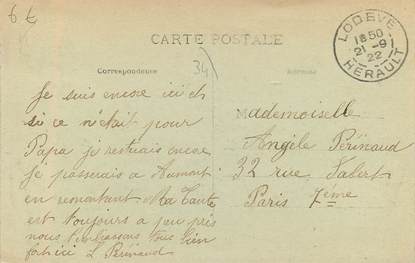 6 €
CARTE POSTALE
LODEVE
18 50
21 -9
22
HERAULT
Correspondance
34
Adresse
Je suis encore ici et
si ce n'était pour
Papa je resterais encore
je passerais a Aumont
en remontant Ma tante
est toujours a peu près
nous t'embrassons tous bien
fort ici L Périnaud
Mademoiselle
Angèle Périnaud
32 rue Valert
Paris 7ème